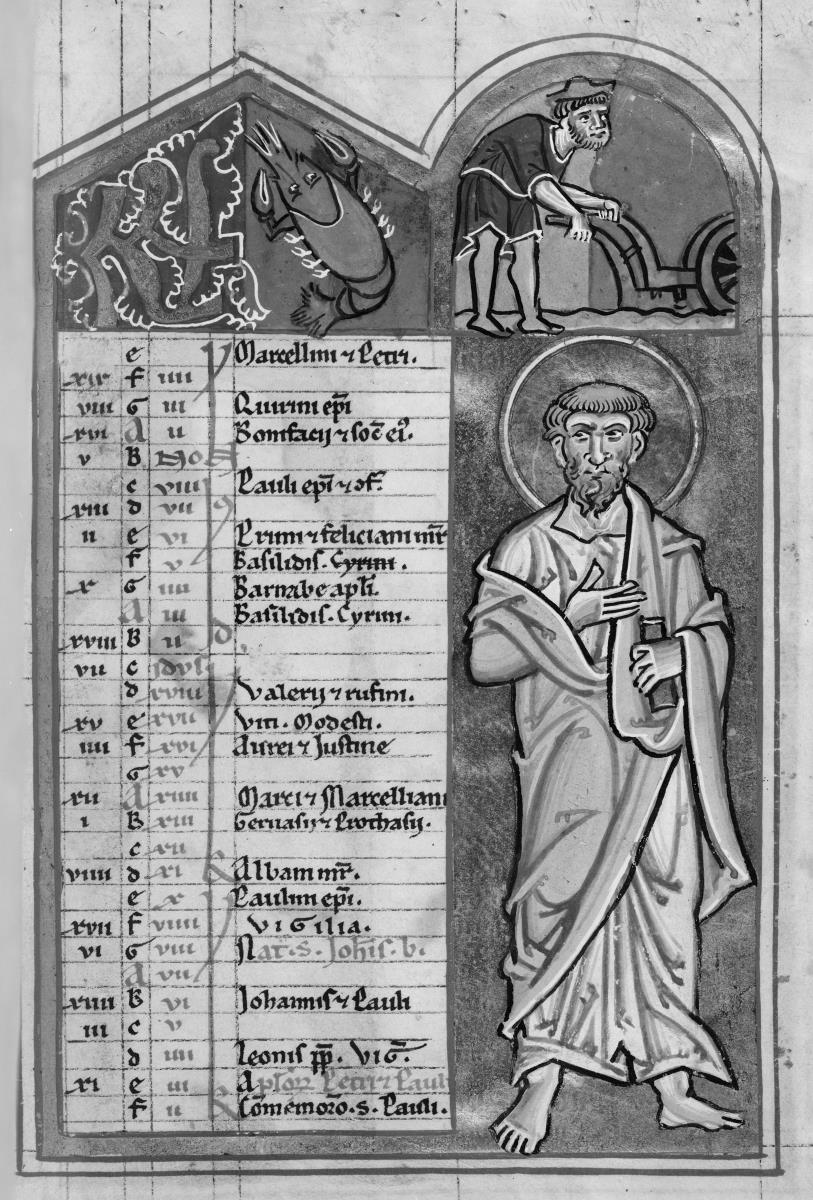 KL
e Marcellini ⁊ Petri.
xix f iiii
viii G iii Quirini ep̄i
xvi A ii Bonifacij ⁊ soc̄ ei⁹.
v B NON
c viii Pauli ep̄i ⁊ ɔf.
xiii d vii
ii e vi Primi ⁊ feliciani m̄r
f v Basilidis. Cyrini.
x G iiii Barnabe apl̄i.
A iii Basilidis. Cyrini.
xviii B ii
vii c idus
d xviii Valerij ⁊ rufini.
xv e xvii Viti. Modesti.
iiii f xvi Aurei ⁊ Justine
G xv
xii A xiiii Marci ⁊ Marcelliani
i B xiii Geruasij ⁊ Prothasij.
c xii
viiii d xi Albani m̄r.
e x Paulini ep̄i.
xvii f viiii VIGILIA.
vi G viii Nat. S. Joh̄is. b.
A vii
xiiii B vi Johannis ⁊ Pauli
iii c v
d iiii Leonis p̄p. VIG̅.
xi e iii Petri ⁊ Pauli
f ii Cōmemorō. S. Pauli.